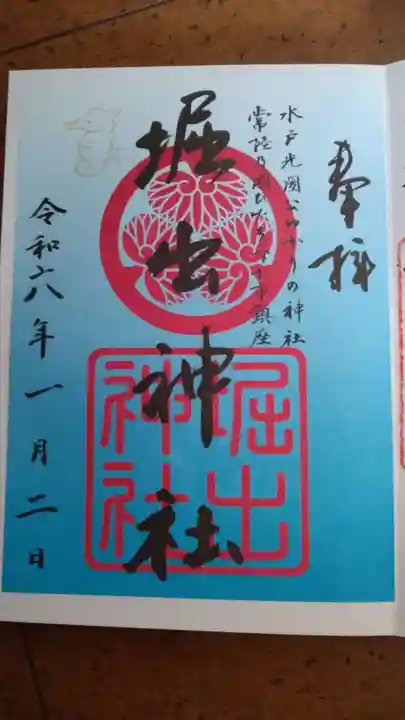 奉拝
水戸光圀公ゆかりの神社
常陸乃国ひたちなか市鎮座
堀出神社
堀出神社
令和六年一月二日